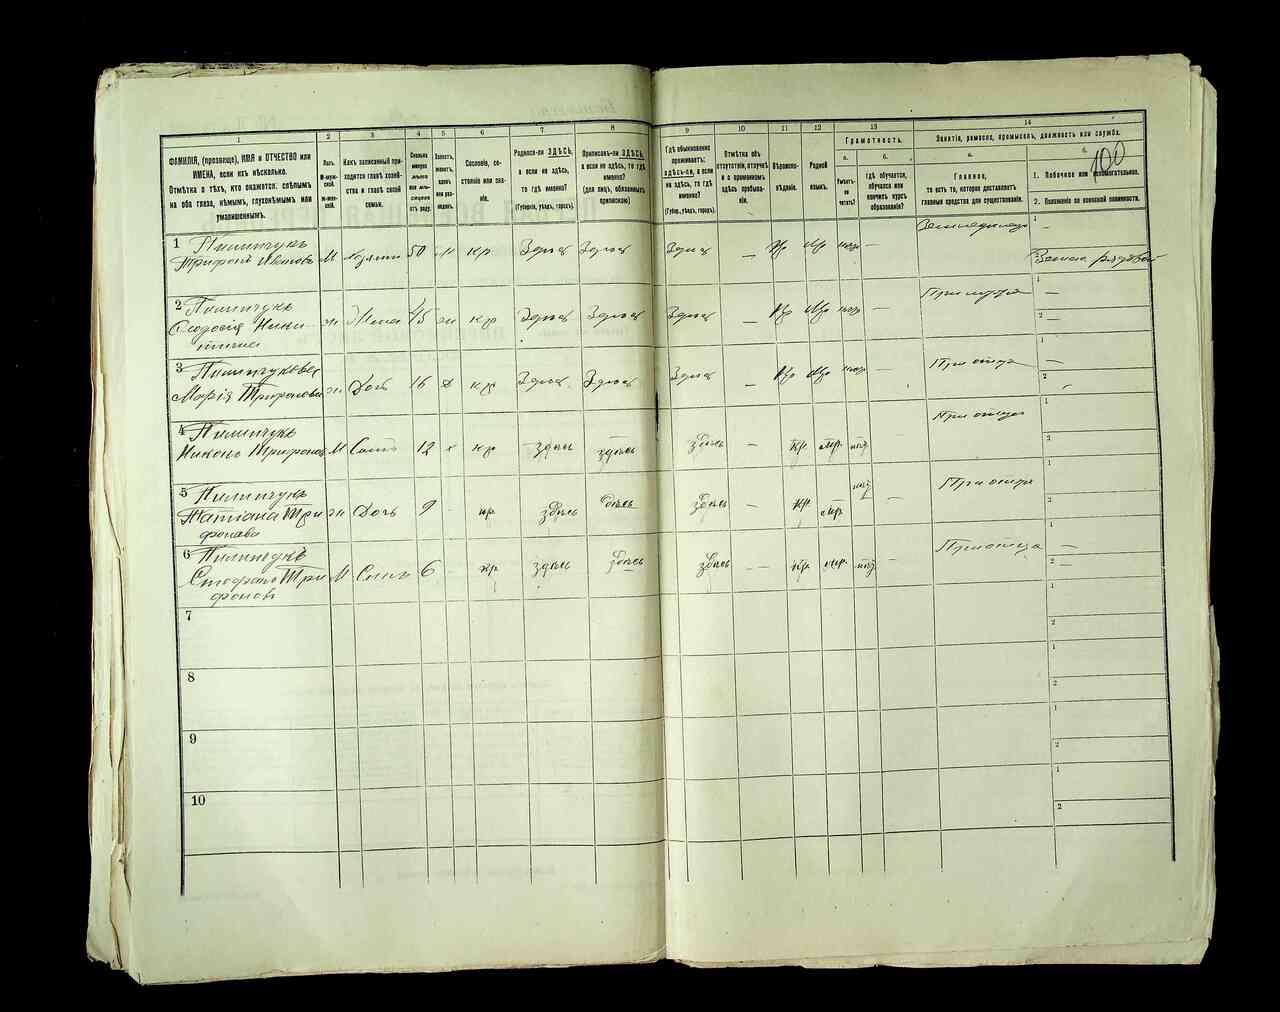 100
1
2
3
4
5
6
7
8
9
10
11
12
13
14
ФАМИЛІЯ, (прозвище), ИМЯ и ОТЧЕСТВО или
ИМЕНА, если ихъ нѣсколько.
Отмѣтка о тѣхъ, кто окажется: слѣпымъ
на оба глаза, нѣмымъ, глухонѣмымъ или
умалишеннымъ.
Полъ.
М-муж-
ской.
Ж-жен-
скій.
Какъ записанный при-
ходится главѣ хозяй-
ства и главѣ своей
семьи.
Сколько
минуло
лѣтъ
Холостъ,
женатъ,
вдовъ
или раз-
веденъ.
Сословіе, со-
стояніе или зва-
ніе.
Родился-ли ЗДѢСЬ,
а если не здѣсь,
то гдѣ именно?
(Губернія, уѣздъ, городъ).
Приписанъ-ли ЗДѢСЬ,
а если не здѣсь, то гдѣ
именно?
(для лицъ, обязанныхъ
припискою)
Гдѣ обыкновенно
проживаетъ:
здѣсь-ли, а если
не здѣсь, то гдѣ
именно?
(Губ., уѣздъ, городъ).
Отмѣтка объ
отсутствіи, отлучкѣ
и о временномъ
здѣсь пребыва-
ніи.
Вѣроиспо-
вѣданіе.
Родной
языкъ.
Грамотность.
а.
б.
Умѣетъ-
ли
читать?
Гдѣ обучается,
обучался или
кончилъ курсъ
образованія?
Занятіе, ремесло, промыселъ, должность или служба.
а.
б.
Главное,
то есть то, которое доставляетъ
главныя средства для существованія.
1. Побочное или вспомогательное.
2. Положеніе по воинской повинности.
1 Пилипчукъ
Трифонъ Ивановъ М хозяинъ 50 ж кр Здѣсь Здѣсь Здѣсь — Пр Мр негр —
Земледѣлецъ
1 —
2 Запасн рядовой
2 Пилипчукъ
Ники-
тична
ж Жена 45 ж кр Здѣсь Здѣсь Здѣсь — Пр Мр негр —
При мужѣ
1 —
2 —
3 Пилипчукова
Марія Трифонова ж Дочь 16 Д кр Здѣсь Здѣсь Здѣсь — Пр Мр негр —
При отцѣ
1 —
2
4 Пилипчукъ
Никонъ Трифоновъ М Сынъ 12 х кр здѣсь здѣсь здѣсь — пр. мр.
При отцѣ
1
2
5 Пилипчукъ
Татіана Три
фонова
ж Дочь 9 кр здѣсь здѣсь здѣсь — пр. мр. —
При отцѣ
1
2
6 Пилипчукъ
Стефанъ Три
фоновъ
М Сынъ 6 кр. здѣсь здѣсь здѣсь — пр. мр. —
При отца
1 —
2 —
7
1
2
8
1
2
9
1
2
10
1
2